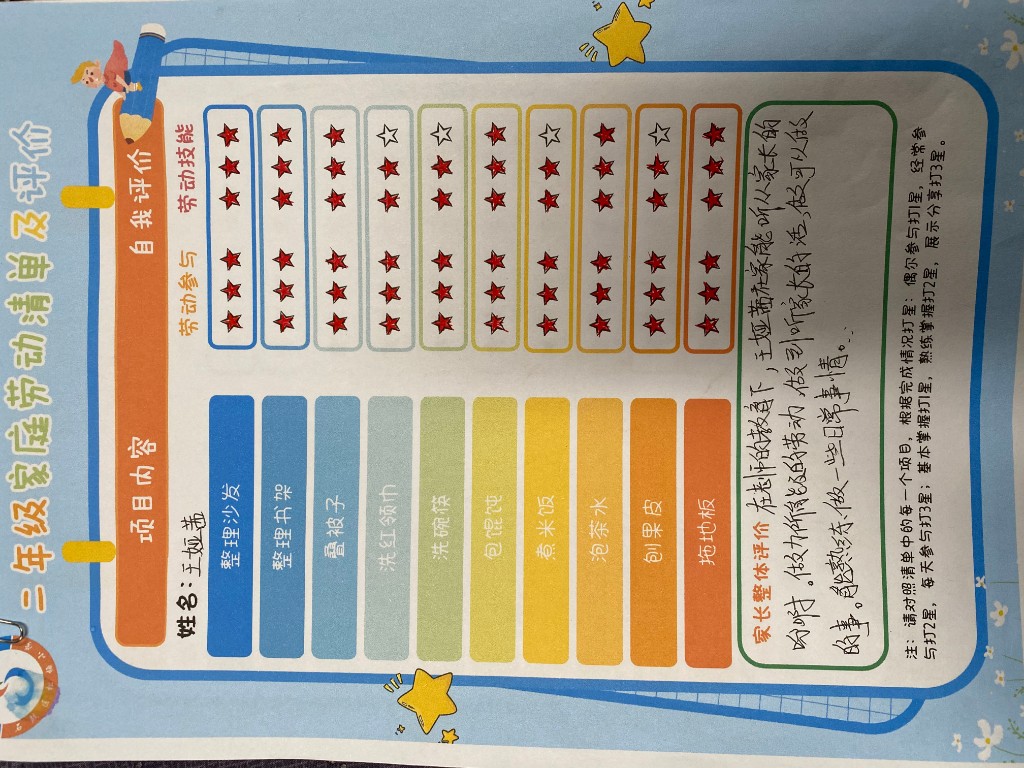 二年级家庭劳动清单及评价
项目内容 自我评价
姓名：王娅茜 劳动参与 劳动技能
整理沙发 ★★★ ★★★
整理书架 ★★★ ★★★
叠被子 ★★★ ★★★
洗红领巾 ★★★ ★★☆
洗碗筷 ★★★ ★★☆
包馄饨 ★★★ ★★★
煮米饭 ★★★ ★★☆
泡茶水 ★★★ ★★★
刨果皮 ★★★ ★★☆
拖地板 ★★★ ★★★
家长整体评价 在老师的教育下，王娅茜在家能听从家长的
吩咐。做力所能及的劳动，做到听家长的话，做可以做
的事。能熟练做一些日常事情。
注：请对照清单中的每一个项目，根据完成情况打星：偶尔参与打1星，经常参
与打2星，每天参与打3星；基本掌握打1星，熟练掌握打2星，展示分享打3星。